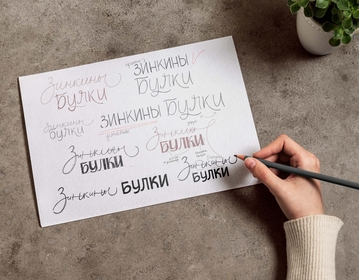 Зинкины
БУЛКИ
ЗИНКИНЫ
БУЛКИ
Зинкины
БУЛКИ
ЗИНКИНЫ БУЛКИ
Зинкины
БУЛКИ
Зинкины
БУЛКИ
Зинкины
БУЛКИ
Зинкины БУЛКИ